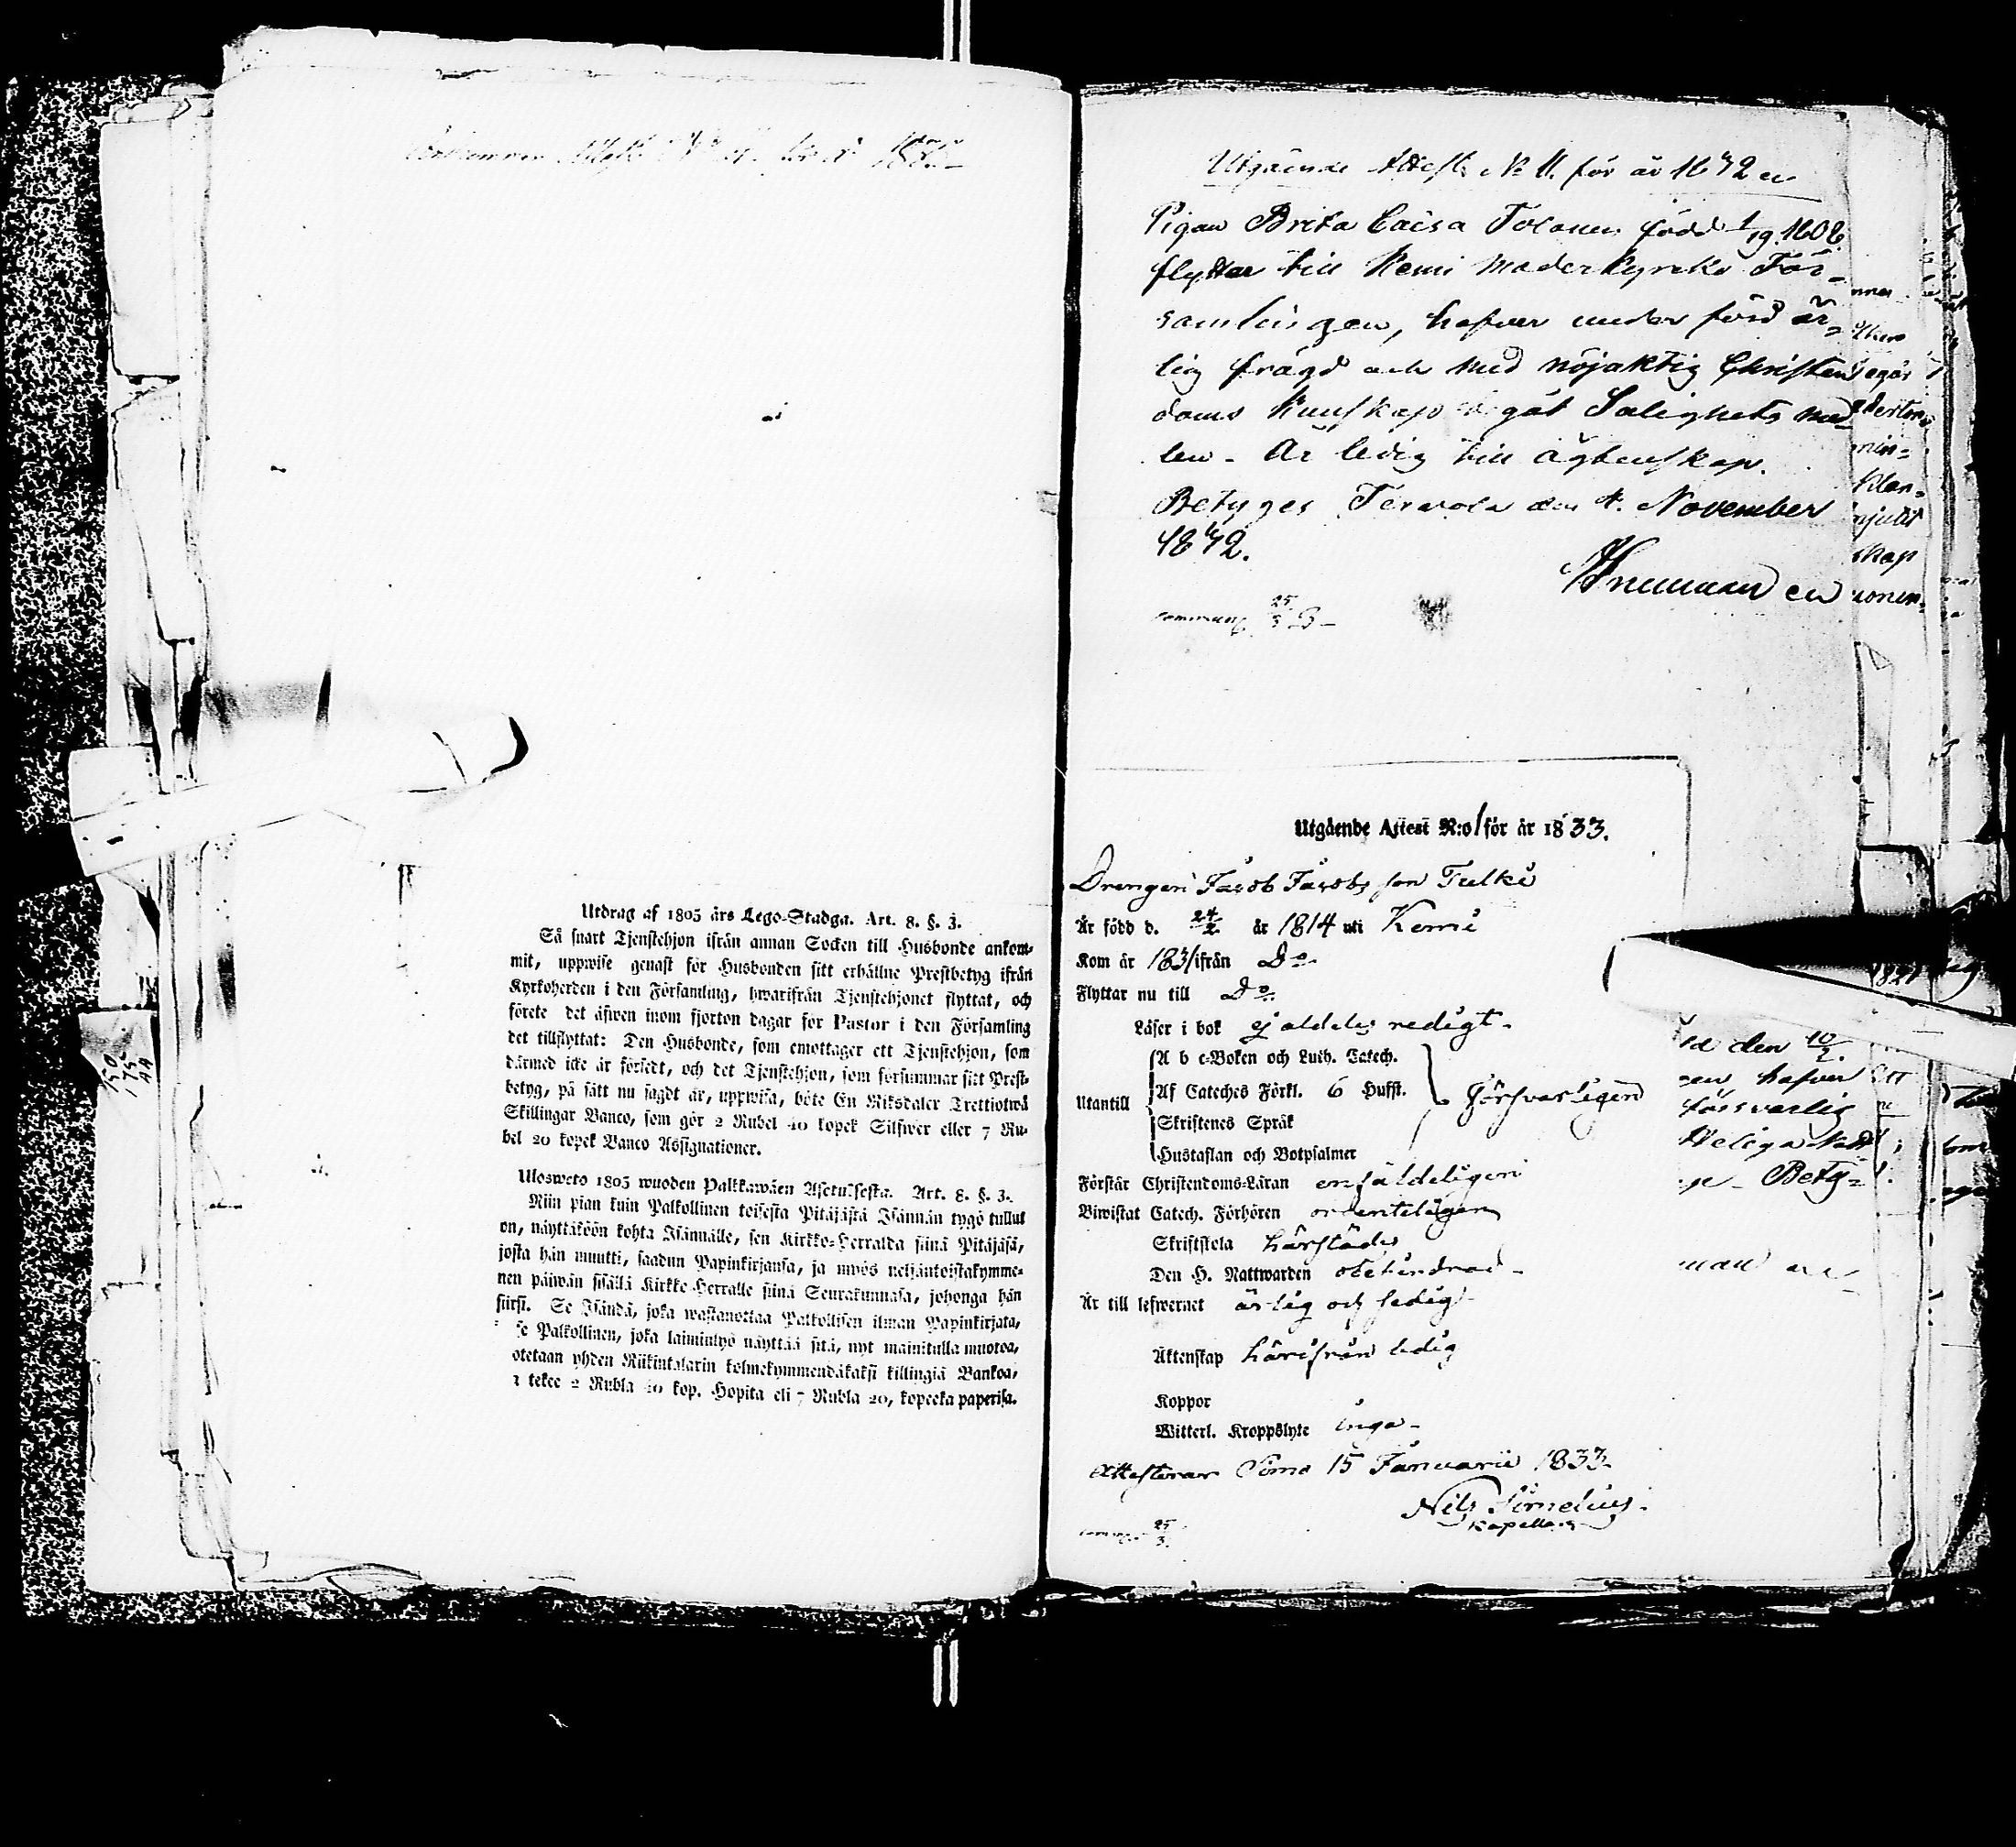 Utdrag af 1805 års Lego-Stadga. Art. 8. §. 3.
Så snart Tjenstehjon ifrån annan Socken till Husbonde ankom-
mit, uppwise genast för Husbonden sitt erhållne Prestbetyg ifrån
Kyrkoherden i den Församling, hwarifrån Tjenstehjonet flyttat, och
förete det äfwen inom fjorton dagar för Pastor i den Församling
det tillflyttat: Den Husbonde, som emottager ett Tjenstehjon, som
därmed icke är försedt, och det Tjenstehjon, som försummar sitt Prest-
betyg, på sätt nu sagdt är, uppwisa, böte En Riksdaler Trettiotwå
Skillingar Banco, som gör 2 Rubel 40 kopek Silfwer eller 7 Ru-
bel 20 kopek Banco Assignationer.
Ulosweto 1805 wuoden Palkkawäen Asetuksesta. Art. 8. §. 3.
Niin pian kuin Palkollinen toisesta Pitäjästä Isännän tygö tullut
on, näyttäköön kohta Isännälle, sen Kirkko-Herralda siinä Pitäjäsä,
josta hän muutti, saadun Papinkirjansa, ja myös neljäntoistakymme-
nen päiwän sisällä Kirkko-Herralle siinä Seurakunnasa, johonga hän
siirsi. Se Isändä, joka wastanottaa Palkollisen ilman Papinkirjata,
se Palkollinen, joka laiminlyö näyttää sitä, nyt mainitulla muotoa,
otetaan yhden Riikintalarin kolmekymmendäkaksi killingiä Bankoa,
tekee 2 Rubla 40 kop. Hopita eli 7 Rubla 20, kopeeka paperisa.
Utgående Attest N:o 11. för år 1832
Pigan Brita Caisa född 1/19 1808
flyttar till Kemi Moderkyrko För-
samlingen, hafver under förd är-
lig frägd och med nöjaktig Christen
doms Kunskap Salighets med
len. Är ledig till Ägtenskap.
Betyges Tervola den 4. November
1832.
25/3
Utgående Attest N:o 1 för år 1833.
Drengen Jacob Jacobs son Tulki
Är född d. 24/2 år 1814 uti Kemi
Kom år 1831 ifrån Do
Flyttar nu till Do
Läser i bok ej aldeles redigt.
Utantill
A b c-Boken och Luth. Catech.
Af Cateches Förkl. 6 Hufst.
Skriftenes Språk
Hustaflan och Botpsalmer
Försvarligen
Förstår Christendoms-Läran enfäldeligen
Biwistat Catech. Förhören ordentligen
Skriftskola härstädes
Den H. Nattwarden obehindrad
Är till lefwernet ärlig och sedig
Äktenskap härifrån ledig
Koppor
Witterl. Kroppslyte inga
Attesterar Simo 15 Januarii 1833
Nils
Kapellan
25/3
1821
den 10/2.
hafver
försvarlig
Heliga
Betÿ-